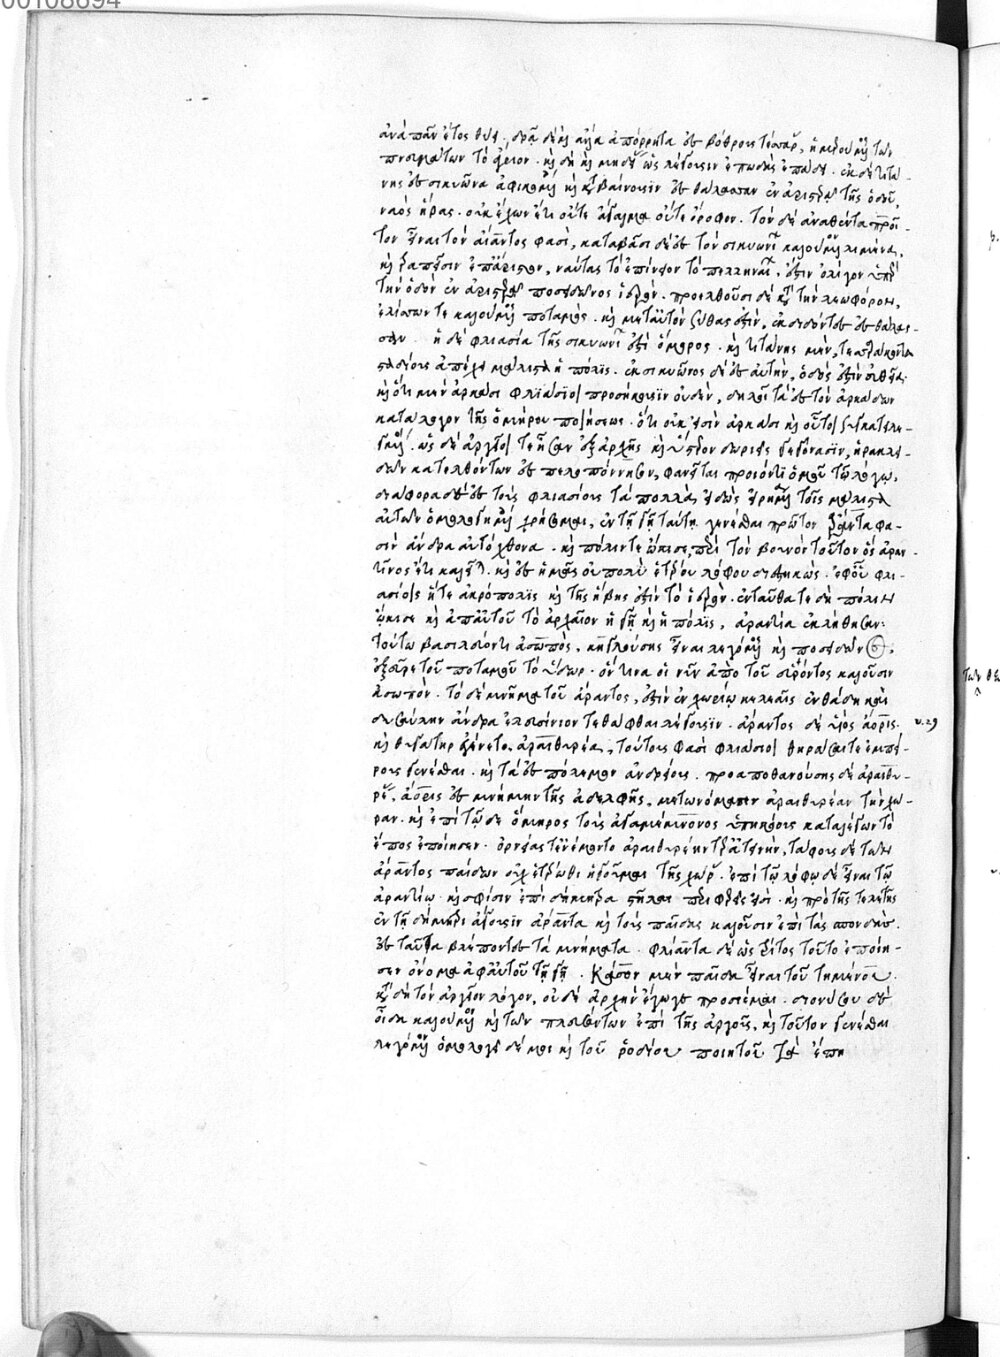 ἀνὰ πᾶν ἔτος θύει, δρᾷ δὲ καὶ ἄλλα ἀπόρρητα ἐς βόθρους τέσσαρας, ἡμερούμενος τῶν
πνευμάτων τὸ ἄγριον. καὶ δὴ καὶ μηδείας ὡς λέγουσιν ἐπωδὰς ἐπάδει. ἐκ δὲ τιτά-
νης ἐς σικυῶνα ἀφικομένοις καὶ καταβαίνουσιν ἐς θάλασσαν ἐν ἀριστερᾷ τῆς ὁδοῦ,
ναὸς ἥρας. οὐκ ἔχων ἔτι οὔτε ἄγαλμα οὔτε ὄροφον. τὸν δὲ ἀναθέντα προῖ-
τον εἶναι τὸν ἄβαντος φασὶ, καταβᾶσι δὲ ἐς τὸν σικυωνίων καλούμενον λιμένα,
καὶ τραπεῖσιν ἐπ' ἄριστον, ναύτας τὸ ἐπίνειον τὸ πελληναίων. ἔστιν ὀλίγον ὑπὲρ
τὴν ὁδὸν ἐν ἀριστερᾷ ποσειδῶνος ἱερόν. προελθοῦσι δὲ κατὰ τὴν λεωφόρον,
ἑλίσσων τε καλούμενος ποταμὸς. καὶ μετ' αὐτὸν σύθας ἐστὶν, ἐκδιδόντες ἐς θάλασ-
σαν. ἡ δὲ φλιασία τῆς σικυωνίων ἐστὶ ὅμορος. καὶ τιτάνης μὲν, τεσσαράκοντα
σταδίους ἀπέχει μάλιστα ἡ πόλις. ἐκ σικυῶνος δὲ ἐς αὐτὴν, ὁδός ἐστιν εὐθεῖα.
καὶ ὅτι μὲν ἀρκάσι φλιάσιοι προσήκουσιν οὐδὲν, δηλοῖ τὰ ἐς τὸν ἀρκάδων
κατάλογον τῆς ὁμήρου ποιήσεως. ὅτι οὐκ εἰσὶν ἀρκάσι καὶ οὗτοι συγκατειλε-
γμένοι. ὡς δὲ ἀργεῖοι τε ἦσαν ἐξ ἀρχῆς καὶ ὕστερον δωριεῖς γεγόνασιν, ἡρακλει-
δῶν κατελθόντων ἐς πελοπόννησον, φανεῖται προϊόντι ὁμοῦ τῷ λόγῳ.
διάφορα δὲ ἐς τοὺς φλιασίους τὰ πολλὰ, εἰδὼς εἰρημένα τοῖς μάλιστα
αὐτῶν ὁμολογημένοις χρήσομαι, ἐν τῇ γῇ ταύτῃ γενέσθαι πρῶτον ἄραντα φα-
σὶν ἄνδρα αὐτόχθονα. καὶ πόλιν τε ᾤκισε, περὶ τὸν βουνὸν τοῦτον ὃς ἀραν-
τῖνος ἔτι καλεῖται. καὶ ἐς ἡμᾶς οὐ πολὺ ἑτέρου λόφου διεστηκὼς. ἐφ' οὗ φλι-
ασίοις ἥτε ἀκρόπολις καὶ τῆς ἥβης ἐστὶν τὸ ἱερόν. ἐνταῦθά τε δὴ πόλιν
ᾤκισε καὶ ἀπ' αὐτοῦ τὸ ἀρχαῖον ἡ γῆ καὶ ἡ πόλις, ἀραντία ἐκλήθησαν.
τούτω βασιλεύοντι ἀσωπὸς, κηλούσης εἶναι λεγόμενος καὶ ποσειδῶνος,
ἐξεῦρε τοῦ ποταμοῦ τὸ ὕδωρ. ὅντινα οἱ νῦν ἀπὸ τοῦ εὑρόντος καλοῦσιν
ἀσωπόν. τὸ δὲ μνῆμα τοῦ ἄραντος, ἐστὶν ἐν χωρίῳ κελεαῖς ἔνθα δὴ καὶ
δυσαύλην ἄνδρα ἐλευσίνιον τεθάφθαι λέγουσιν. ἄραντος δὲ υἱὸς ἄορις. ν. 29
καὶ θυγάτηρ ἐγένετο ἀραιθυρέα, τούτους φασὶ φλιάσιοι θηρᾶσαί τε ἐμπεί-
ρους γενέσθαι. καὶ τὰ ἐς πόλεμον ἀνδρείους. προαποθανούσης δὲ ἀραιθυ-
ρέας, ἄορις ἐς μνήμην τῆς ἀδελφῆς, μετωνόμασεν ἀραιθυρέαν τὴν χώ-
ραν. καὶ ἐπὶ τῷδε ὅμηρος τοὺς ἀγαμέμνονος ὑπηκόους καταλέγων τὸ
ἔπος ἐποίησεν. ὀρνείας τ' ἐνέμοντο ἀραιθυρέην τ' ἐρατεινὴν, τάφους δὲ τῶν
ἄραντος παίδων οὐχ ἑτέρωθι ἡγοῦμαι τῆς χώρας. ἐπὶ τῷ λόφῳ δὲ εἶναι τῷ
ἀραντίνῳ. καὶ σφίσιν ἐπίσημοι στῆλαι περιφερεῖς εἰσὶ. καὶ πρὸ τῆς τελετῆς
ἐν τῇ δήμητρι ἄγουσιν ἄραντα καὶ τοὺς παῖδας καλοῦσιν ἐπὶ τὰς σπονδὰς.
ἐς ταῦτα βλέποντες τὰ μνήματα. φλίαντα δὲ ὃς τρίτος τοῦτο ἐποίη-
σεν ὄνομα ἀφ' αὑτοῦ τῇ γῇ. κεῖσον μὲν παῖδα εἶναι τοῦ τημένου.
κατὰ δὴ τὸν ἀργείων λόγον, οὐδὲ ἀρχὴν ἔγωγε προσίεμαι. διονύσου δὲ
οἶδα καλούμενον καὶ τῶν πλευσάντων ἐπὶ τῆς ἀργοῦς, καὶ τοῦτον γενέσθαι
λεγόμενον ὁμολογεῖ δέ μοι καὶ τοῦ ῥοδίου ποιητοῦ τὰ ἔπη